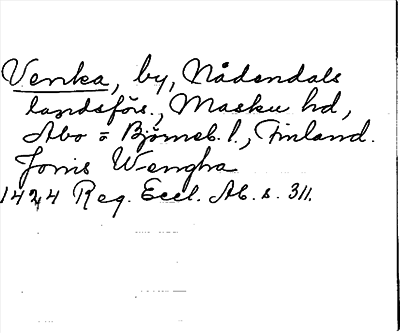 Venka, by, Nådendals
landsförs., Masku hd,
Abo = Björneb. l., Finland.
Jonis Wengha
1424 Reg. Eccl. Ab. s. 311.